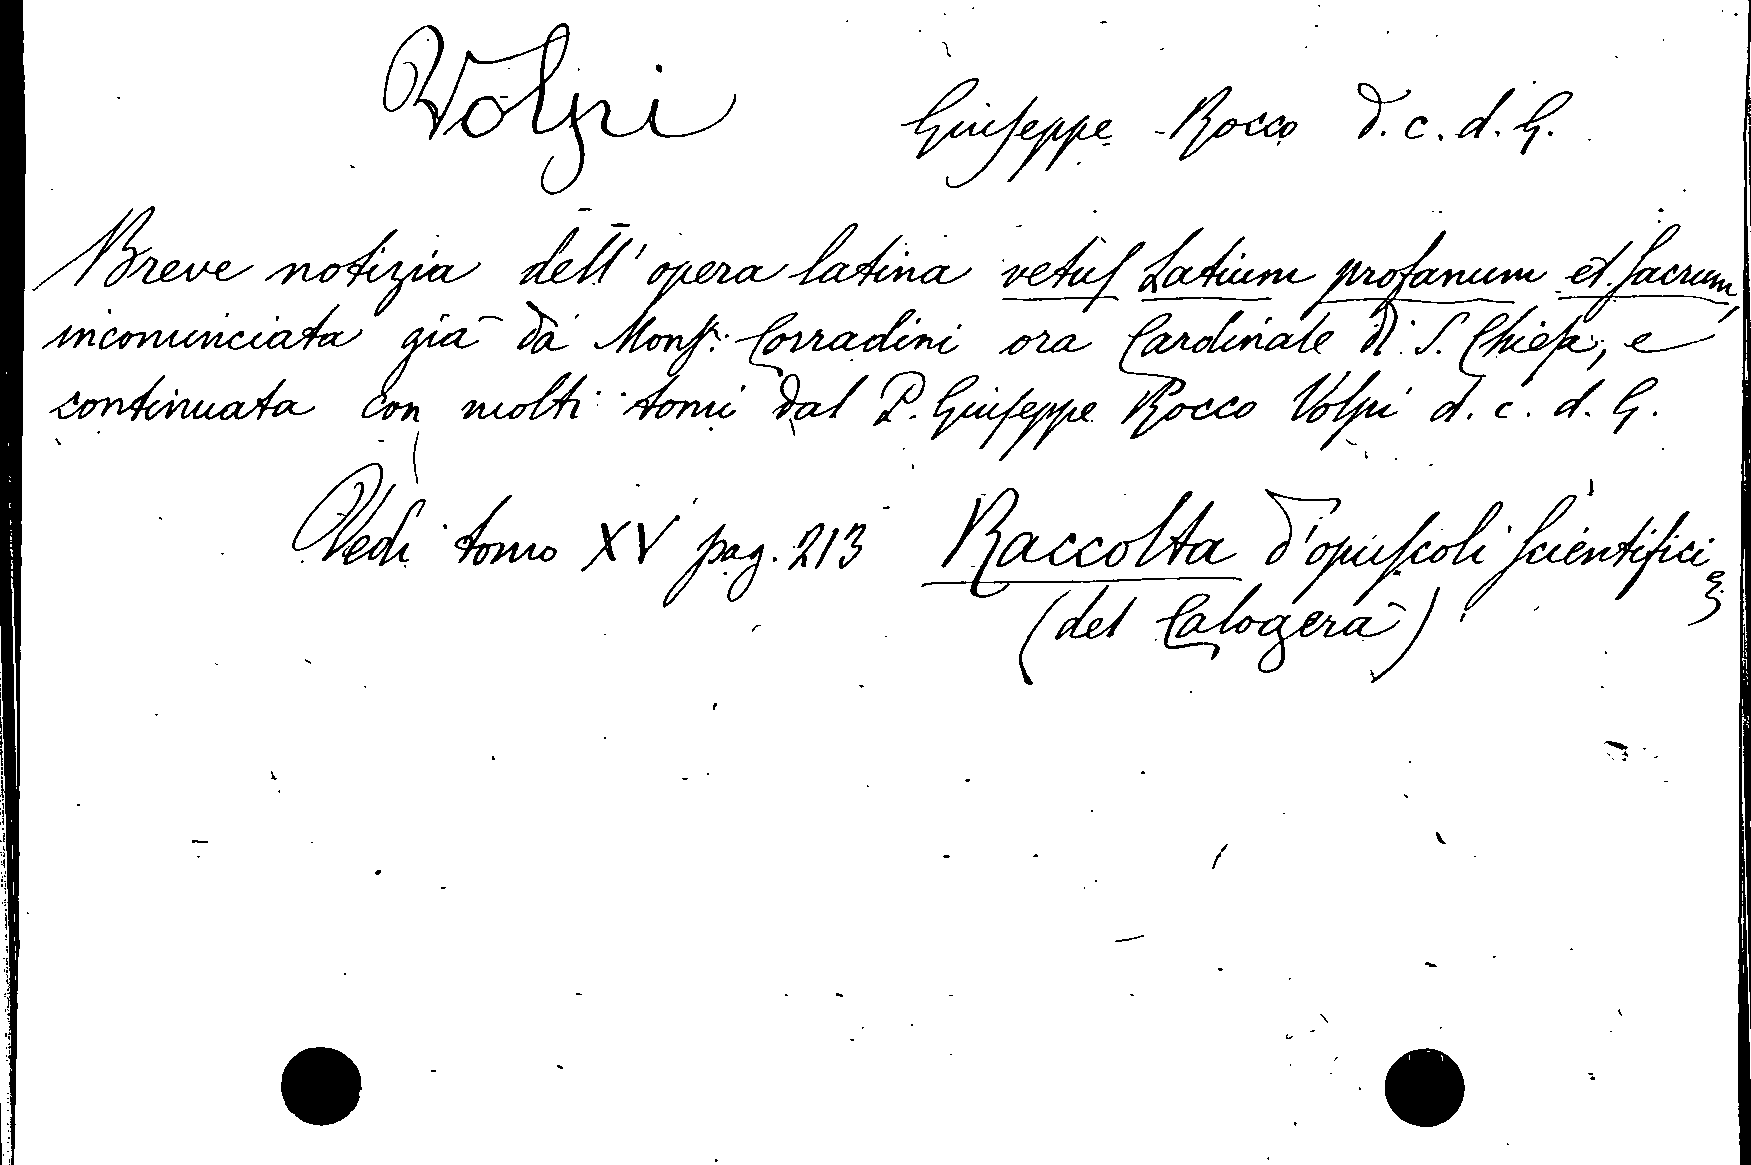 Volpi Giuseppe Rocco d. c. d. G.
Breve notizia dell' opera latina vetus Latium profanum et sacrum,
incominciata già da Mons: Corradini ora Cardinale di S. Chiesa, e
continuata con molti tomi dal P. Giuseppe Rocco Volpi d. c. d. G.
Vedi tomo XV pag. 213 Raccolta d'opuscoli scientifici
(del Calogerà)